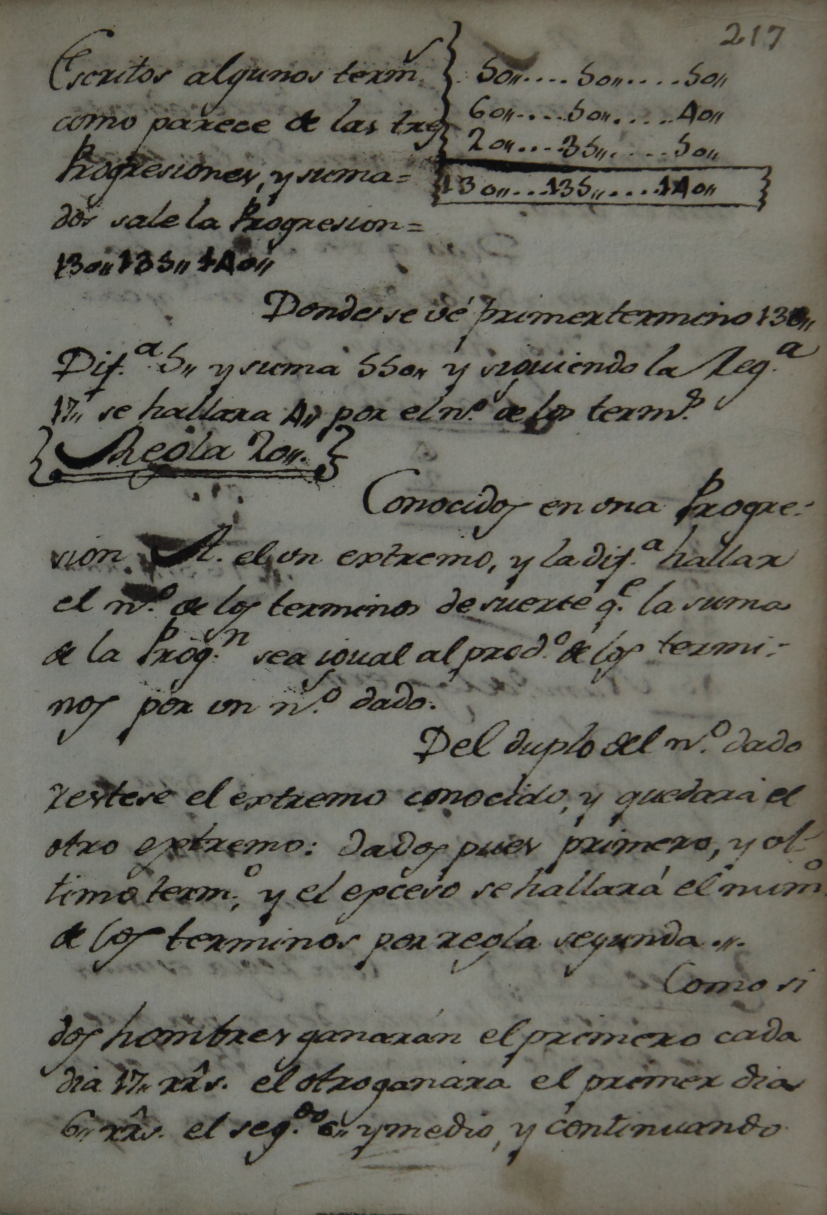 217
Escritos algunos term.s
como parece de las tres
Progresiones, y suma=
dos sale la Progresion=
130,, 135,, 140,,
50,,....50,,....50,,
60,,....50,,....40,,
20,,....35,,....50,,
130,,...135,,....140,,
Donde se vé primer termino 130,,
Dif.a 5,, y suma 550,, y siguiendo la Reg.a
17,, se hallara 4,, por el n.o de los term.s
Regla 20,,.
Conocidos en una Progre-
sion A. el un extremo, y la dif.a hallar
el n.o de los terminos de suerte q.e la suma
de la Prog.n sea igual al prod.o de los termi-
nos por un n.o dado.
Del duplo del n.o dado
restese el extremo conocido, y quedará el
otro extremo: dados pues primero, y ol-
timo term.o, y el exceso se hallará el num.o
de los terminos por regla segunda.,,.
Como si
dos hombres ganarán el primero cada
dia 17,, rrs. el otro ganara el primer dia
6,, rrs. el seg.do 6,, y medio, y continuando